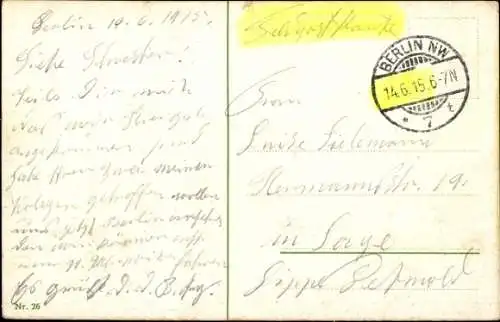 Berlin 14.6.1915.
Liebe Schwester!
Teile Dir mit
das wir hier gut
angekommen sind
Habe hier zwei meiner
Kolegen getroffen wollen
uns jetzt Berlin ansehen
wir
Es grüßt D. d. B.
Nr. 26
Feldpostkarte
BERLIN NW
14.6.15.6-7N
* 7 t
Frau
Luise Sielemann
Hermannstr. 19.
in Lage
Lippe Detmold